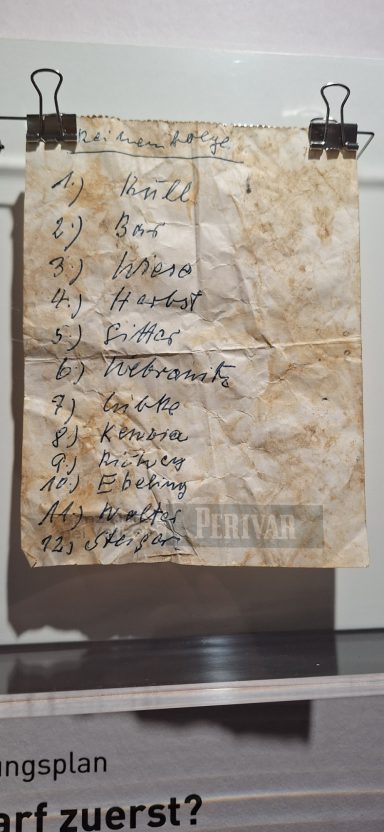 Reihenfolge
1.) Krüll
2.) Bär
3.) Wiese
4.) Herbst
5.) Gitter
6.)
7.) Lübke
8.)
9.)
10.) Ebeling
11.) Walter
12.) Steiger
PERIVAR
ungsplan
arf zuerst?